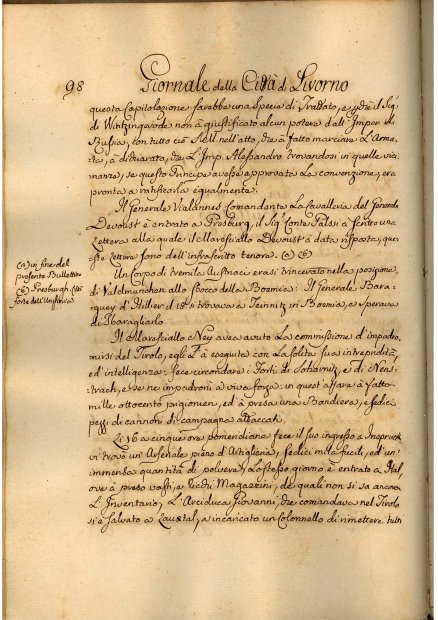 98
Giornale della Città di Livorno
questa Capitolazione sarebbe una Specie di Trattato, e il Sig.
di Wintzingerode non à giustificato alcun potere dall'Imper. di
Russia, con tutto ciò nell'atto, che à fatto marciare L'Arma-
ta, à dichiarato, che L'Imp. Alessandro trovandosi in quelle vici-
nanze, se questo Principe avesse approvata La convenzione, era
pronta a ratificarla egualmente.
Il Generale Vialannes Comandante La Cavalleria del
Davoust è entrato a Presburg, il Sig. Conte Palffi à scritto una
Lettera alla quale il Maresciallo Davoust à data risposta, que-
ste Lettere sono dell'infrascritto tenore. (a) (b)
(a) in fine del
presente Bullettino
(b) Presburgh
forte dell'Ungheria
Un Corpo di tremila Austriaci erasi trincerato nella posizione
di Valdmunchen allo sbocco della Boemia: Il Generale Bara-
quey d'Hillier il 18 si trovava a Teinnitz in Boemia, e sperava
di sbaragliarlo
Il Maresciallo Ney aveva avuto La commissione d'impadro-
nirsi del Tirolo, egli L'à eseguita con La solita sua intrepidità,
ed intelligenza: fece circondare i Forti di Scharnitz, e di Neus-
trach, e se ne impadronì a viva forza: in quest'affare à fatto
mille ottocento prigionieri, ed à presa una Bandiera, e sedici
pezzi di cannoni di campagna attaccati.
Li 16 a cinque ore pomeridiane fece il suo ingresso a Inspruck
vi trovò un Arsenale pieno d'Artiglieria, sedici mila fucili, ed un'
immensa quantità di polvere, Lo stesso giorno è entrato a Hal,
ove à preso vasti, e ricchi Magazzini, de' quali non si sa ancora
L'Inventario, L'Arciduca Giovanni, che comandava nel Tirolo
si è salvato a à incaricato un Colonnello di rimettere tutti